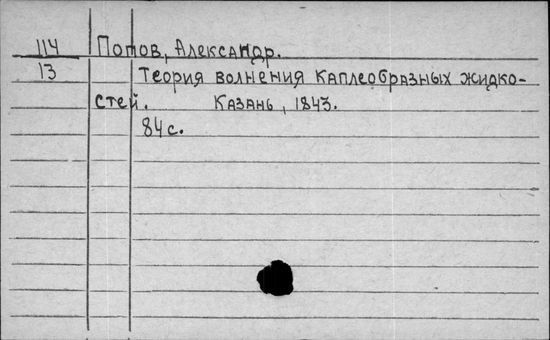 114 Попов, Александр.
13 Теория волнения каплеобразных жидко-
стей. Казань, 1843.
84 с.